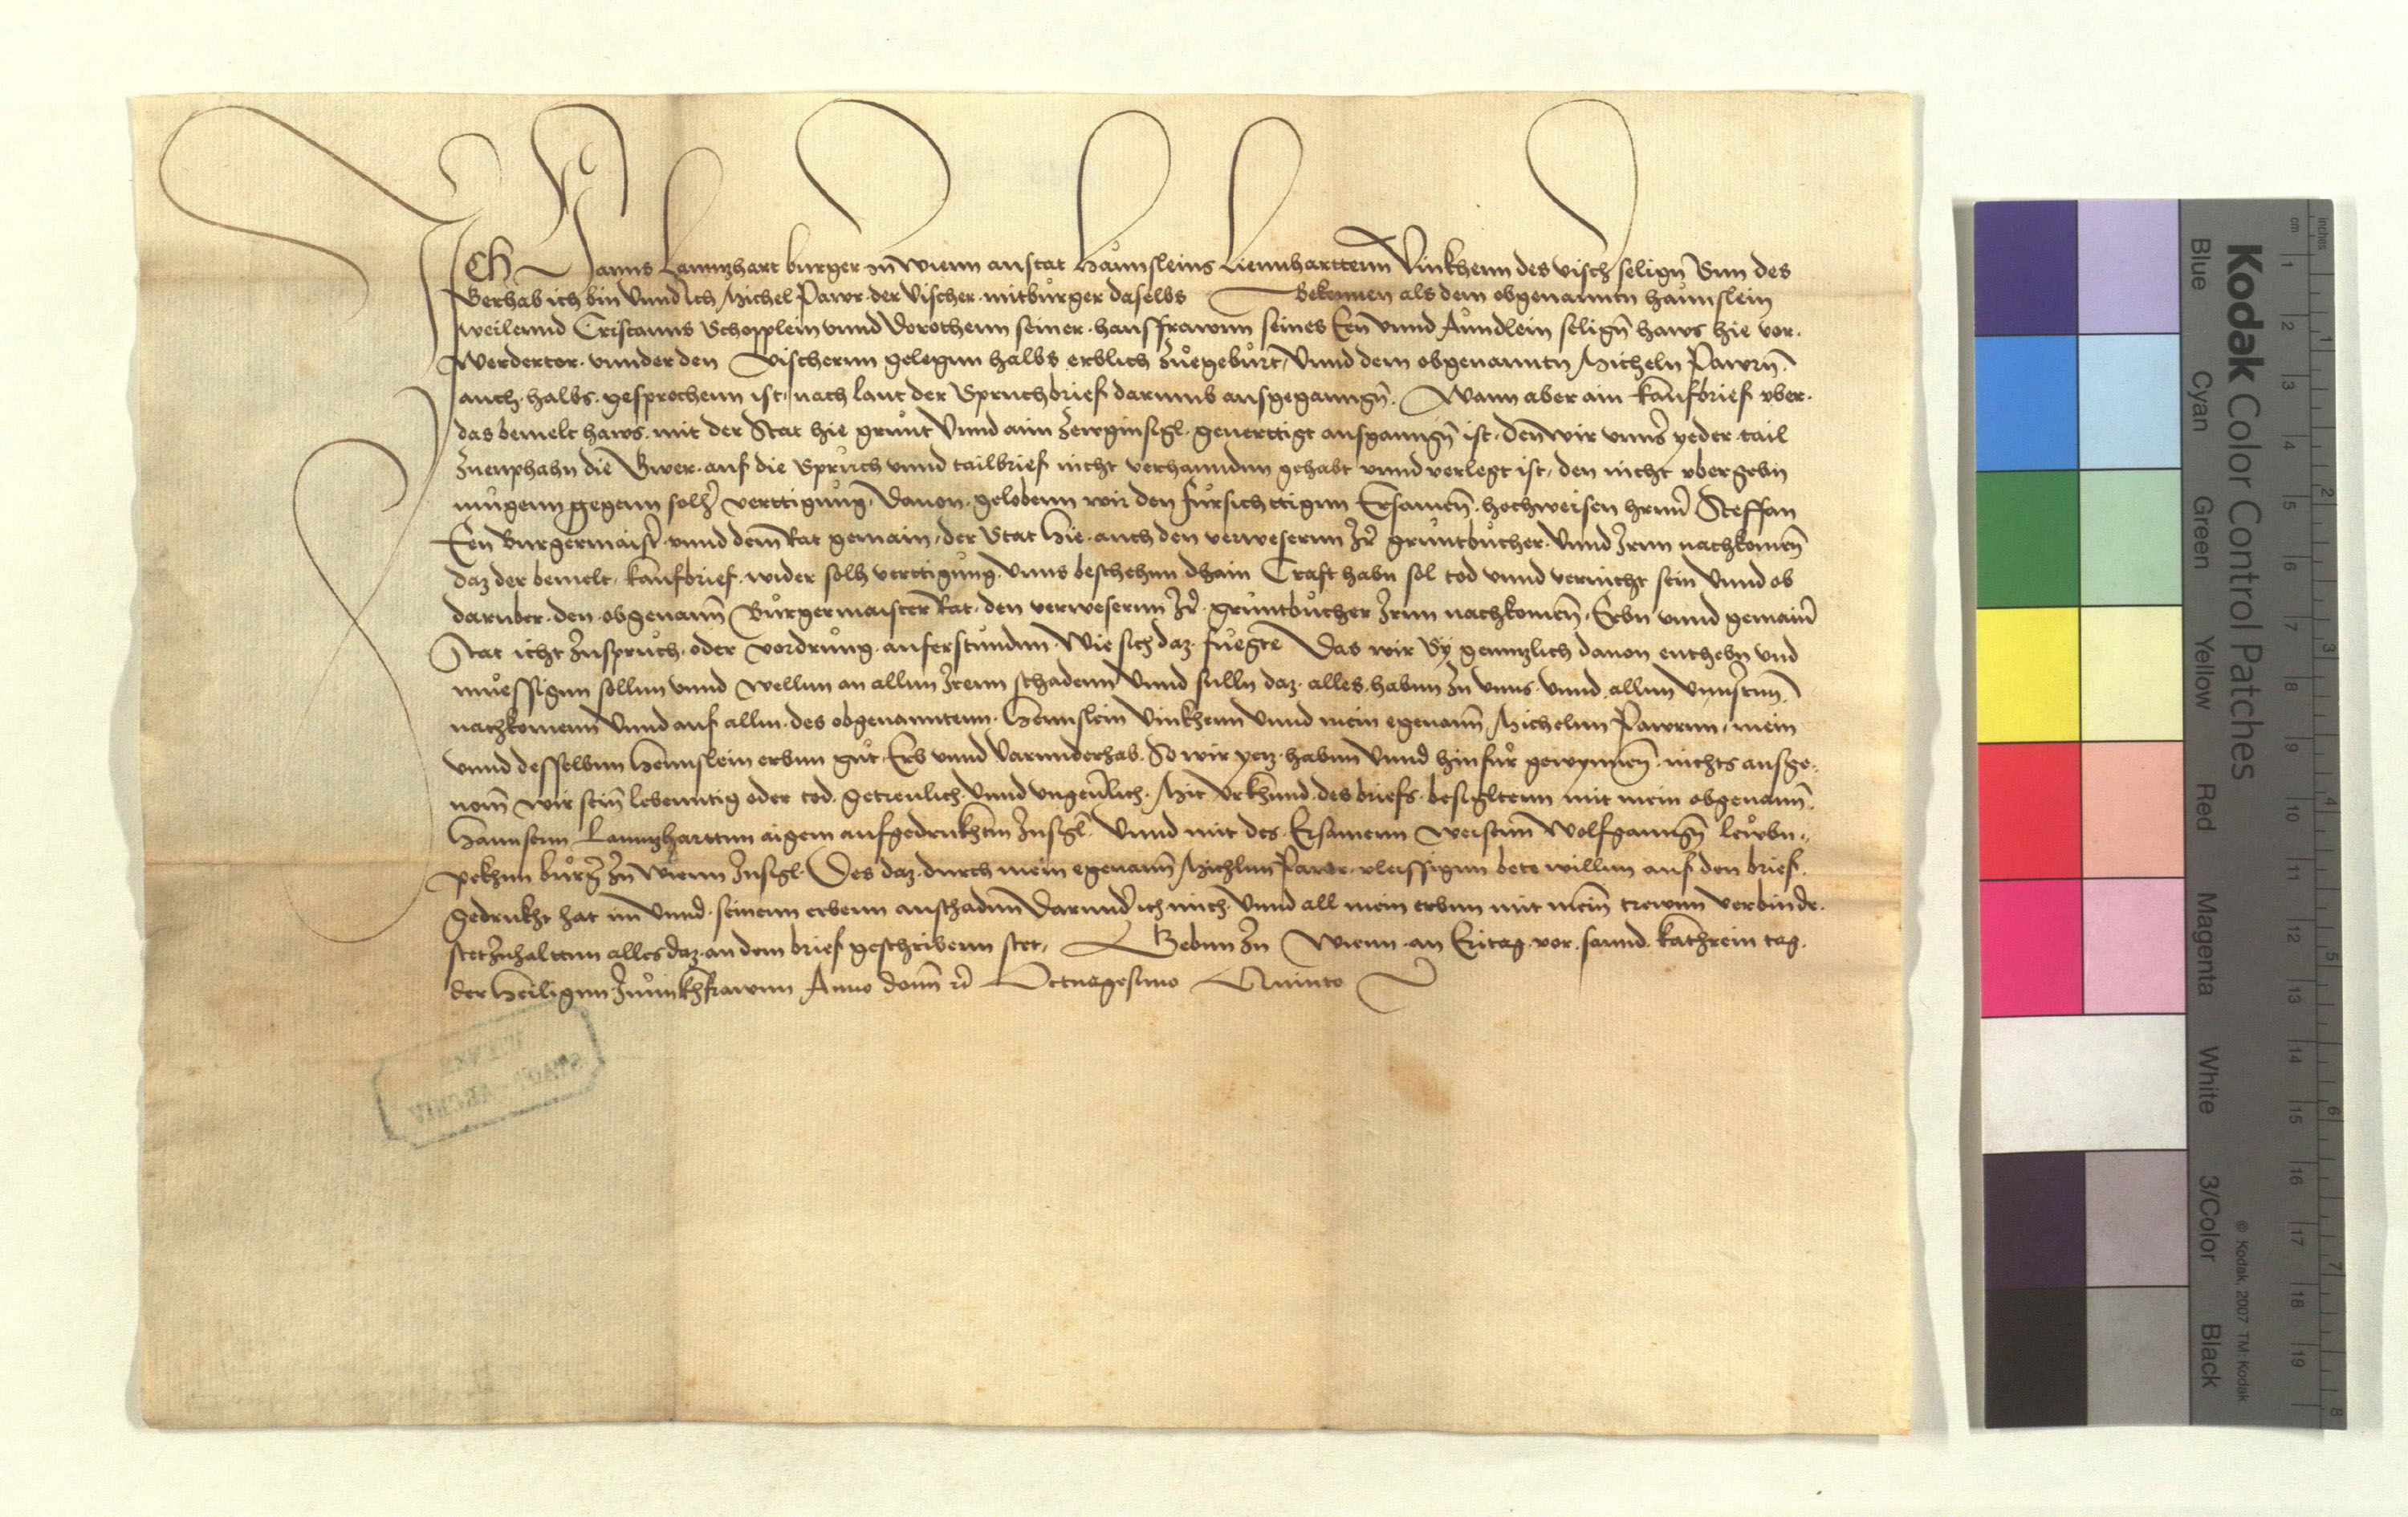 Ich Hanns Lanntzhart burger zu Wienn anstat Hannsleins Liennharttenn Vinkhenn des visch seligen Sun des
Gerhab ich bin vnnd Ich Michel Pawr der vischer mitburger daselbs Bekennen als dem obgenannten hannslein
weilennd Cristanns Schopplein vnnd Dorothenn seiner hausfrawnn seines Een vnnd Aundlein selign haws hie vor
Werdertor vnnder den Vischernn gelegnn halbs erblich zuegeburt Vnnd dem obgenannten Micheln Pawrn
auch halbs gesprochenn ist nach laut der Spruchbrief darumb ausgeganngn Wann aber ain kaufbrief vber
das bemelt haws mit der Stat hie grunt Vnnd aim zewginsigl geuerttigt ausganngn ist den wir vnns yeder tail
zu enphahn die Gwer auf die Spruch vnnd tailbrief nicht verhanndnn gehabt vnnd verlegt ist den nicht vbergebn
mugenn gegenn solher verttigung Dauon gelobenn wir den fursichttigen Ersamen hochweisen hernn Steffan
Een Burgermaister vnnd dem Rat gemain der Stat Hie auch den verwesernn Irer gruntbucher Vnnd Irnn nachkomen
daz der bemelt kaufbrief wider solh verttigung vnns beschehnn dhain Craft habn sol tod vnnd vernicht sein Vnnd ob
daruber den obgenann Burgermaister Rat den verwesernn Irer gruntbucher Irnn nachkomen Erbn vnnd gemainer
Stat icht Zuspruch oder vordrung auferstundnn Wie sich daz fuegte Das wir Sy genntzlich dauon enthebn vnd
muessignn sollnn vnnd wellnn an allnn Irenn schadenn Vnnd sulln daz alles habnn zu vnns vnnd allnn vnnsernn
nachkomenn Vnnd auf allnn des obgenanntenn Hennslein Vinkhenn Vnnd mein egenann Michelnn Pawrnn mein
vnnd desselbnn Hennslein erbnn gut Erb vnnd Varunderhab So wir yetz habnn Vnnd hinfur gewynnen nichts ausge
nom wir sein lebenntig oder tod getreulich Vnnd vngeuerlich Mit Vrkhund des briefs besigltenn mit mein obgenann
Hannsenn Lanntzharttnn aigem aufgedrukhtm Insigl Vnnd mit des Ersamenn weisenn Wolfganngn lewbn
pekhnn burger zu Wienn Insigl Des daz durch mein egenann Michlnn Pawr vleissignn bete willnn auf den brief
gedrukht hat im Vnnd seinenn erbenn anschadnn Darunder ich mich Vnnd all mein erbnn mit mein trewnn verbinde
stet zuhalttnn alles daz an dem brief geschribenn stet Gebnn zu Wienn an Eritag vor sannd kathrein tag
der Heilignn Junkhfrawnn Anno domini etc Octuagesimo Quinto
WIENER
STADT-ARCHIV
Kodak Color Control Patches
Blue Cyan Green Yellow Red Magenta White 3/Color Black
© Kodak, 2007 TM: Kodak
inches 1 2 3 4 5 6 7 8
cm 1 2 3 4 5 6 7 8 9 10 11 12 13 14 15 16 17 18 19